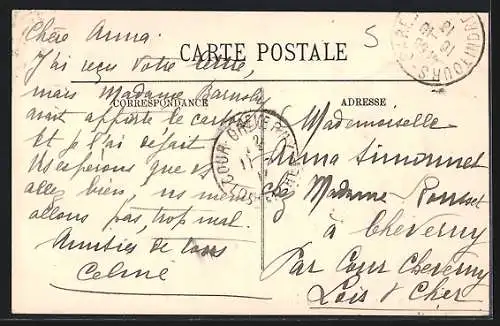 Chère Anna.
CARTE POSTALE
J'ai reçu votre lettre,
mais Madame Barnola
avait apporté le carton
CORRESPONDANCE
ADRESSE
Et je l'ai défait
Ns espérons que vs
allez bien, ns mêmes
allons pas trop mal.
Amitiés de tous
Celine
Mademoiselle
Anna Simonnet
chez Madame Rousset
à Cheverny
Par Cour Cheverny
Loir & Cher
5
COUR-CHEVERNY
TOURS